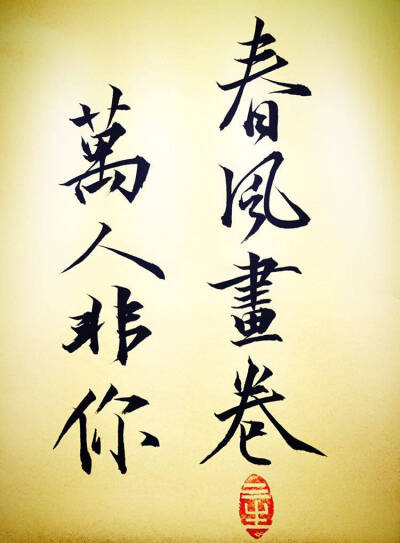 春風畫卷
萬人非你